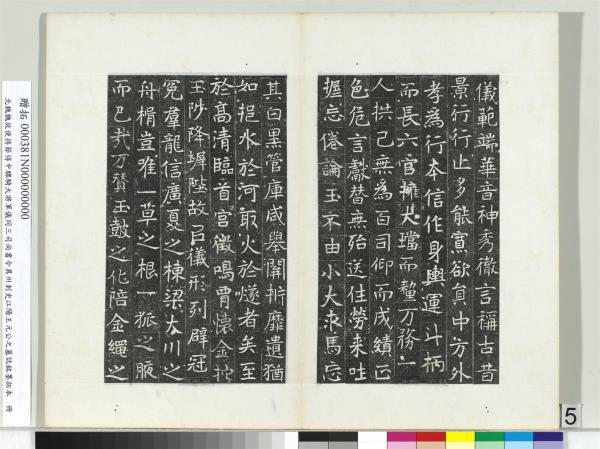 儀範端華音神秀徹言稱古昔
景行行止多能寡欲貞中方外
孝為行本信作身輿運斗柄
而長六官擁大璫而釐万務一
人拱己無為百司仰而成績正
色危言獻替無殆送往勞來吐
握忘倦論玉不由小大求馬忘
其白黑管庫咸舉關㭊靡遺猶
如挹水於河取火於燧者矣至
於高清臨首宮徵鳴胃懷金拕
玉陟降墀陛故已儀形列辟冠
冕羣龍信廣夏之棟梁大川之
舟楫豈唯一草之根一狐之腋
而已哉方贊玉鼓之化陪金繩之
贈拓 000381N000000000
北魏魏故使持節侍中驃騎大將軍儀同三司尚書令冀州刺史江陽王元公之墓誌銘墨拓本 冊
5